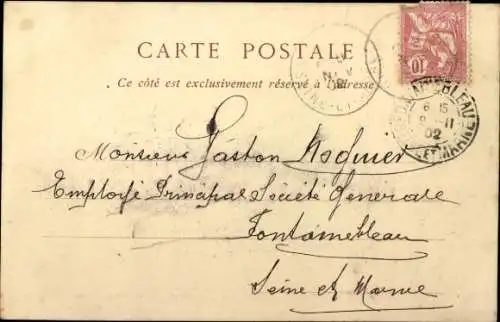 CARTE POSTALE
Ce côté est exclusivement réservé à l'adresse
10
FONTAINEBLEAU
6 15
8 - 11
02
ET MARNE
Monsieur Gaston
Employé Principal Société Generale
Fontainebleau
Seine et Marne